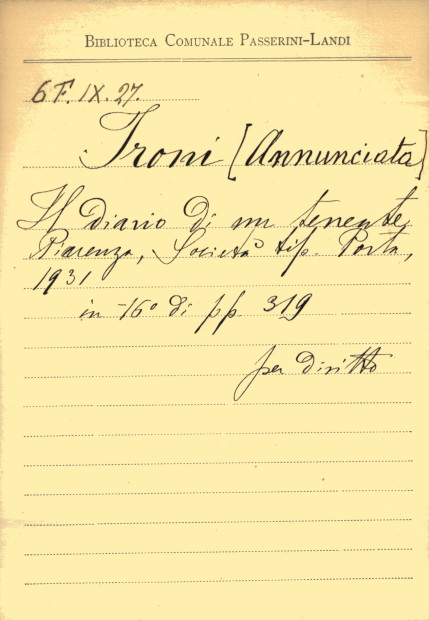 BIBLIOTECA COMUNALE PASSERINI-LANDI
6 F. IX. 27.
Troni [Annunciata]
Il diario di un tenente
Piacenza, Società tip. Porta,
1931
in-16° di pp. 319
per diritto